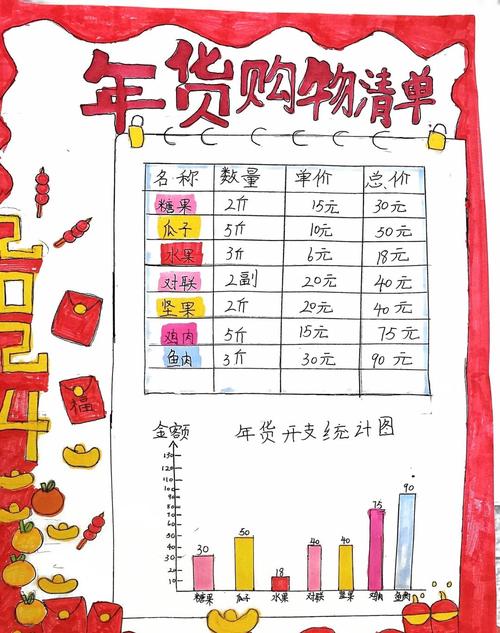 年货购物清单
2024
名称 数量 单价 总价
糖果 2斤 15元 30元
瓜子 5斤 10元 50元
水果 3斤 6元 18元
对联 2副 20元 40元
坚果 2斤 20元 40元
鸡肉 5斤 15元 75元
鱼肉 3斤 30元 90元
福
金额 年货开支统计图
150
130
120
110
100
90
80
70
60
50
40
30
20
10
30 50 18 40 40 75 90
糖果 瓜子 水果 对联 坚果 鸡肉 鱼肉